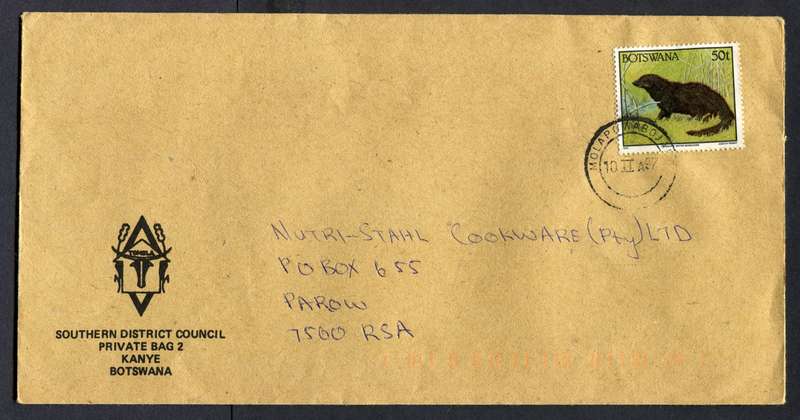 BOTSWANA 50t
MOLAPOWABOJ
10 II A 97
NUTRI-STAHL COOKWARE (Pty) LTD
PO BOX 655
PAROW
7500 RSA
SOUTHERN DISTRICT COUNCIL
PRIVATE BAG 2
KANYE
BOTSWANA